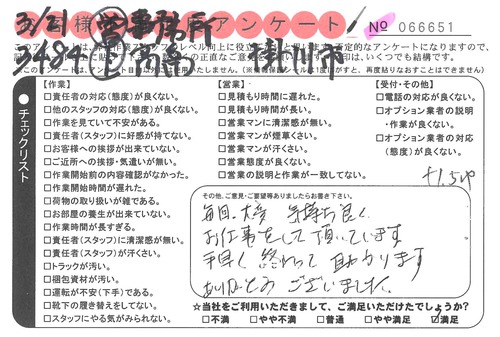 3/21 営 事務所
お客様 アンケート
№ 066651
3484 上 引越 掛川市
チェックリスト
【作業】
□責任者の対応(態度)が良くない。
□他のスタッフの対応(態度)が良くない。
□作業を見ていて不安がある。
□責任者(スタッフ)に好感が持てない。
□お客様への挨拶が出来ていない。
□ご近所への挨拶・気遣いが無い。
□作業開始前の内容確認がなかった。
□作業開始時間が遅れた。
□荷物の取り扱いが雑である。
□お部屋の養生が出来ていない。
□作業時間が長すぎる。
□責任者(スタッフ)に清潔感が無い。
□責任者(スタッフ)が汗くさい。
□トラックが汚い。
□梱包資材が汚い。
□運転が不安(下手)である。
□靴下の履き替えをしてない。
□スタッフにやる気がみられない。
【営業】
□見積もり時間に遅れた。
□見積もり時間が長い。
□営業マンに清潔感が無い。
□営業マンが煙草くさい。
□営業マンが汗くさい。
□営業態度が良くない。
□営業の説明と作業が一致してない。
【受付・その他】
□電話の対応が良くない。
□オプション業者の説明・作業が良くない。
□オプション業者の対応(態度)が良くない。
その他、ご意見・ご要望等ありましたらお書き下さい。
毎回、大変 気持ち良く
お仕事をして頂いています
手早く 終わって 助かります
ありがとう ございました。
☆当社をご利用いただきまして、ご満足いただけたでしょうか?
□不満 □やや不満 □普通 □やや満足 ☑満足